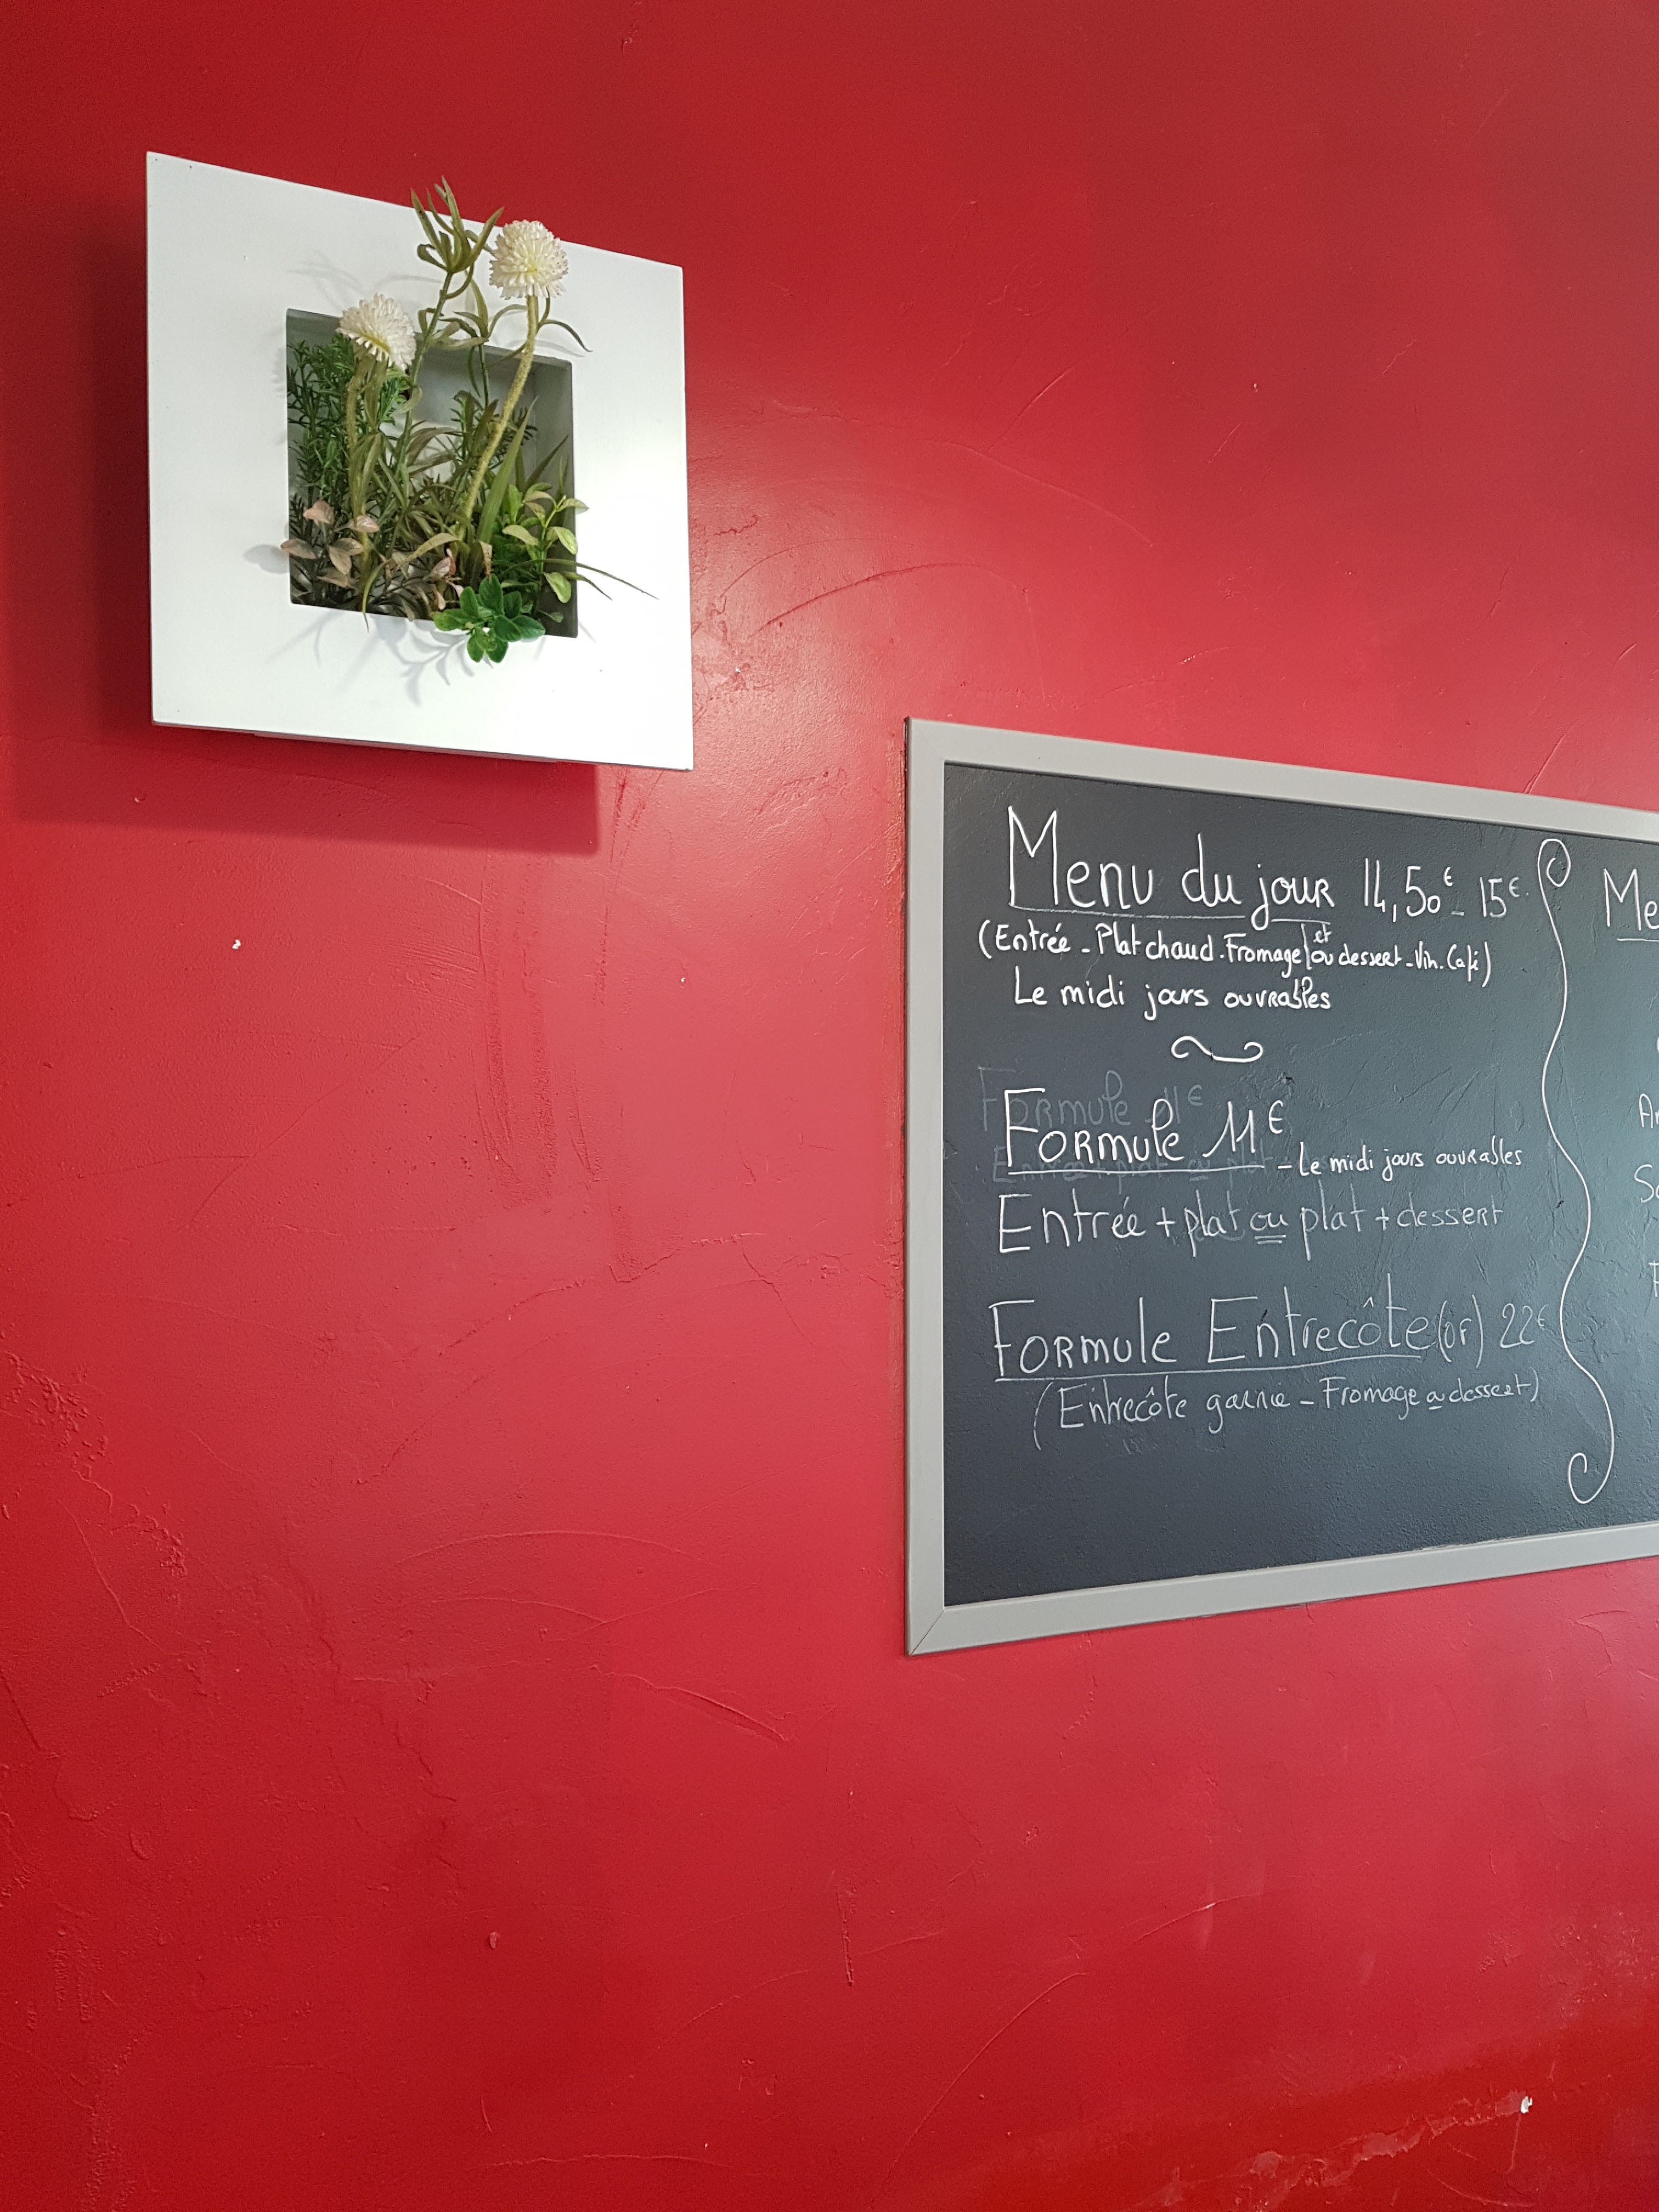 Menu du jour 14,50€ - 15€
(Entrée - Plat chaud - Fromage et/ou dessert - Vin - Café)
Le midi jours ouvrables
Formule 11€
Formule 11€ - Le midi jours ouvrables
Entrée + plat ou plat + dessert
Entrée + plat ou plat + dessert
Formule Entrecôte 22€
(Entrecôte garnie - Fromage ou dessert)
Me